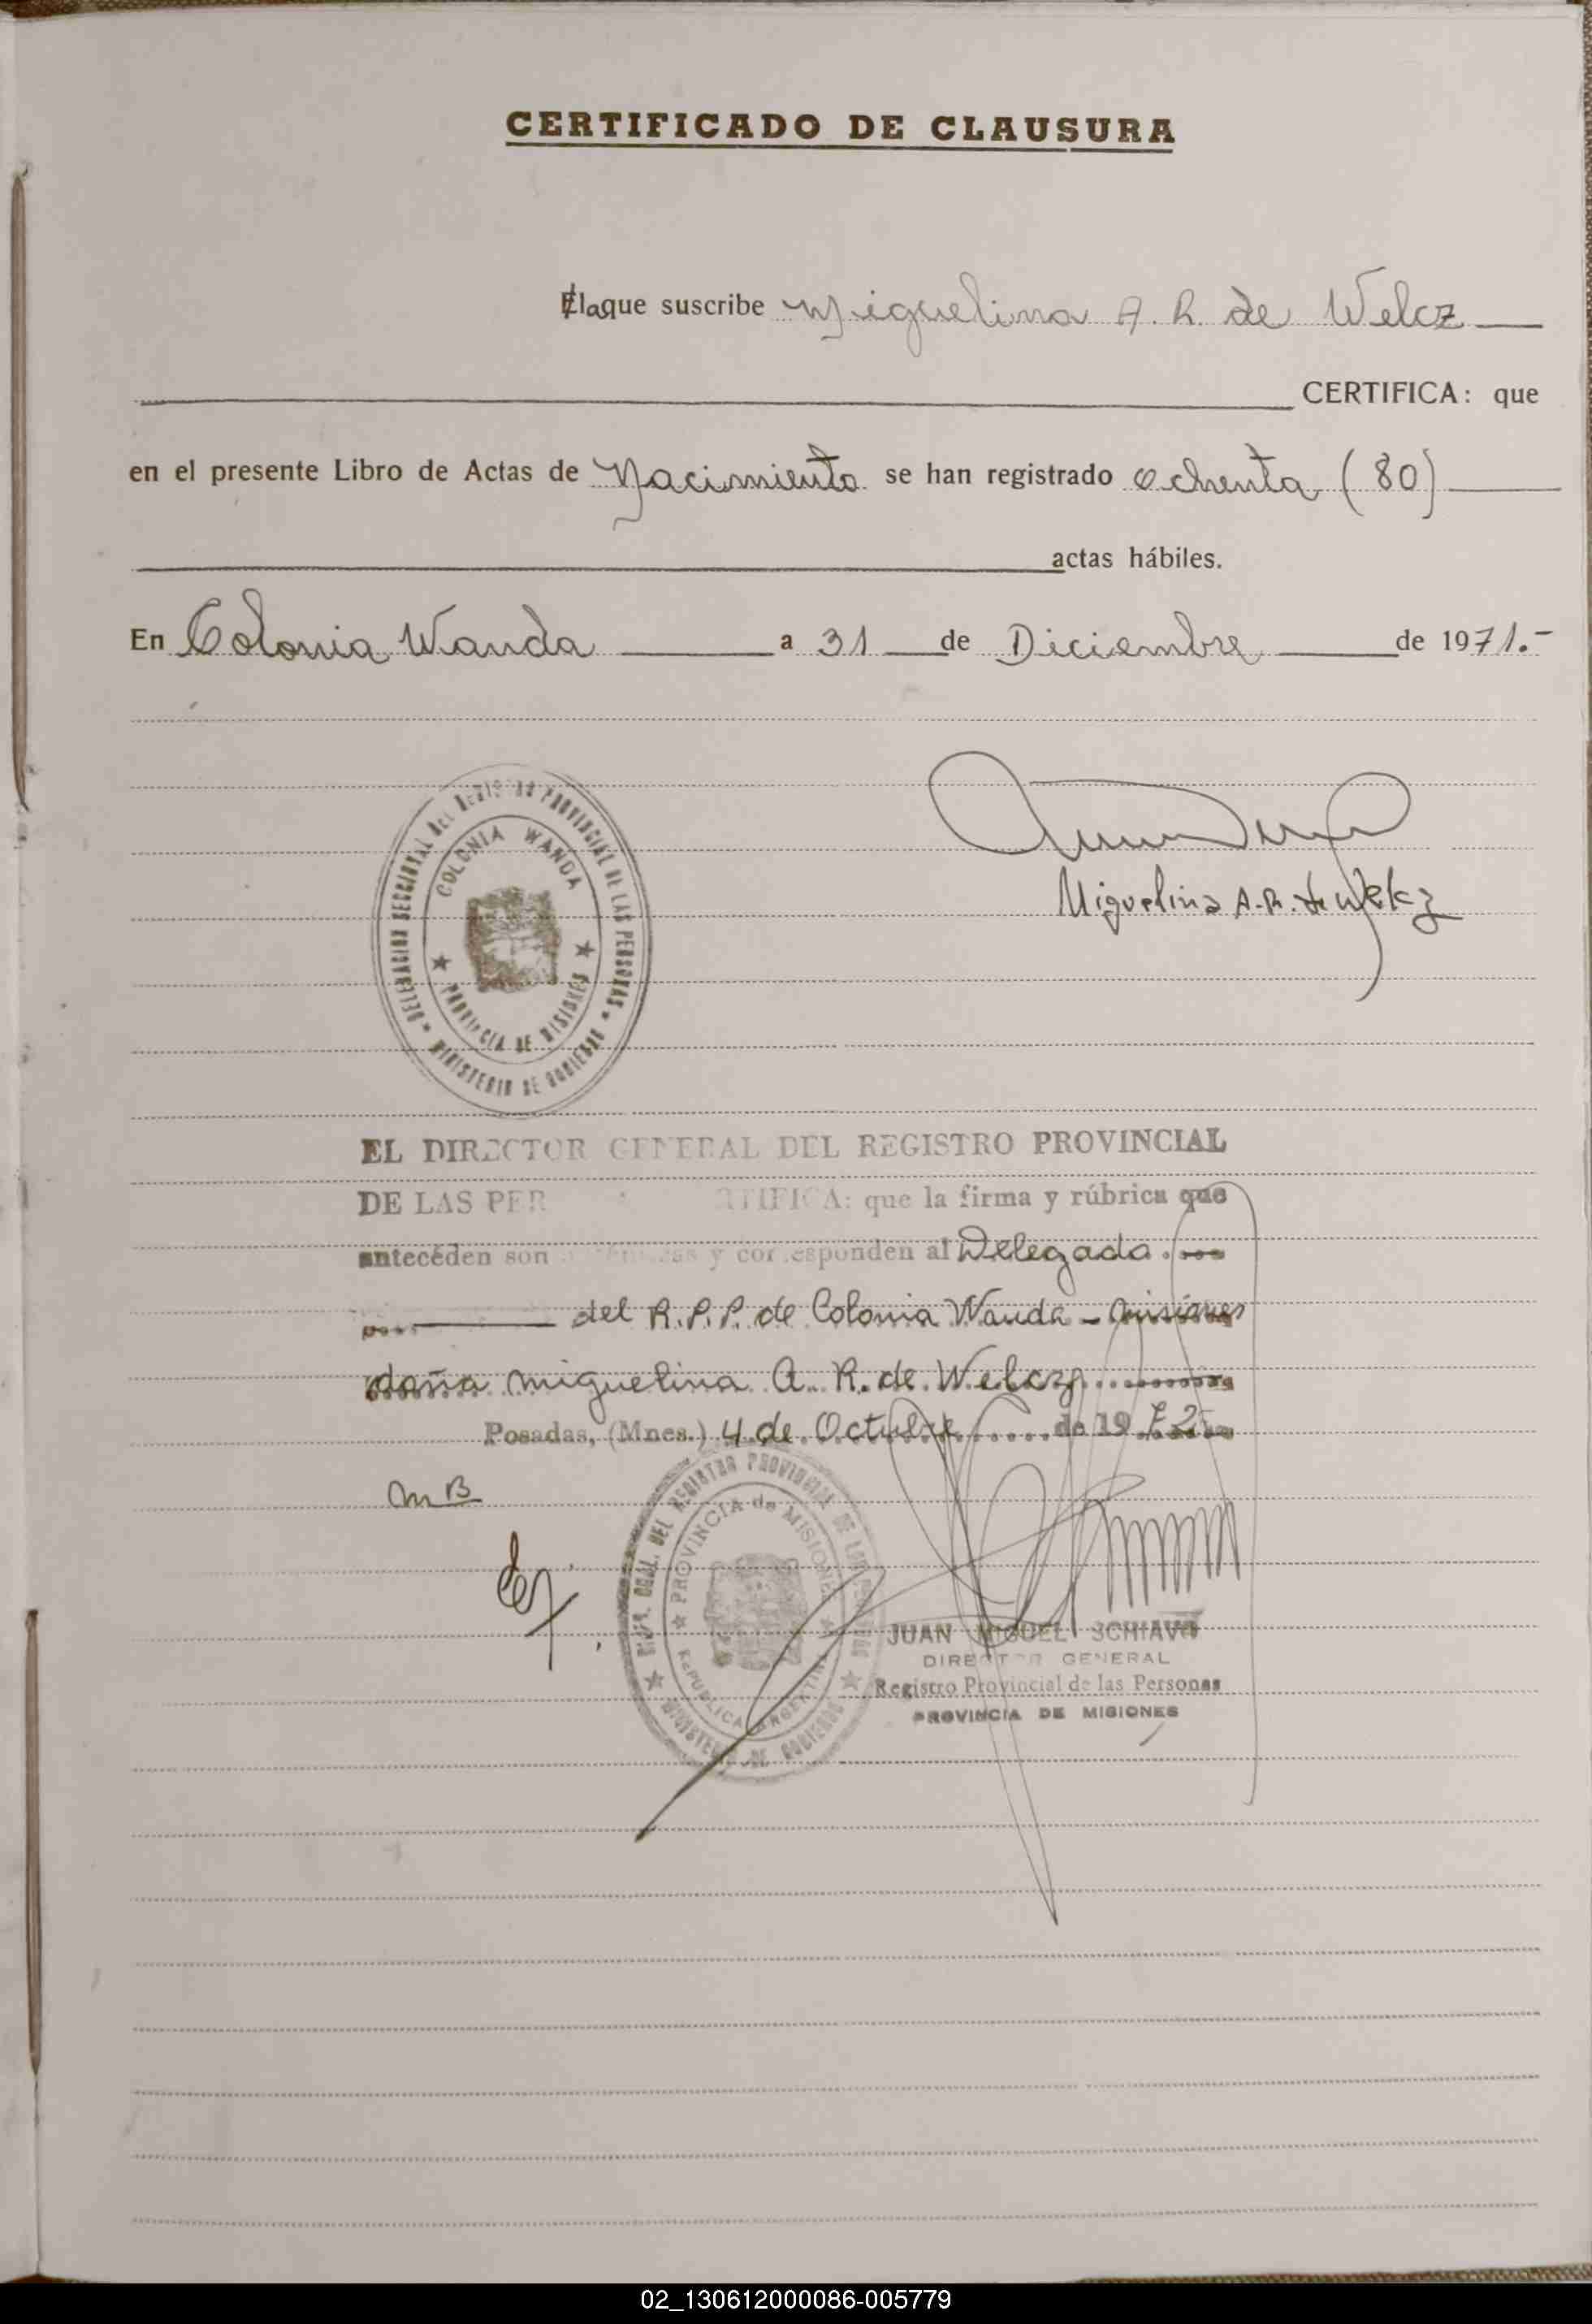 CERTIFICADO DE CLAUSURA
El la que suscribe Miguelina A. R. de Welcz
CERTIFICA: que
en el presente Libro de Actas de Nacimiento se han registrado ochenta (80)
actas hábiles.
En Colonia Wanda a 31 de Diciembre de 1971.-
DELEGACION SECCIONAL DEL REGISTRO PROVINCIAL DE LAS PERSONAS
MINISTERIO DE GOBIERNO
COLONIA WANDA
PROVINCIA DE MISIONES
Miguelina A. R. de Welcz
EL DIRECTOR GENERAL DEL REGISTRO PROVINCIAL
DE LAS PER CERTIFICA: que la firma y rúbrica que
anteceden son auténticas y corresponden al Delegada
del R.P.P. de Colonia Wanda - Misiones
doña Miguelina A. R. de Welcz
Posadas, (Mnes.) 4 de Octubre de 1972
MB
DIR. GRAL. DEL REGISTRO PROVINCIAL DE LAS PERSONAS
MINISTERIO DE GOBIERNO
PROVINCIA de MISIONES
REPUBLICA ARGENTINA
JUAN MIGUEL SCHIAVO
DIRECTOR GENERAL
Registro Provincial de las Personas
PROVINCIA DE MISIONES
02_130612000086-005779